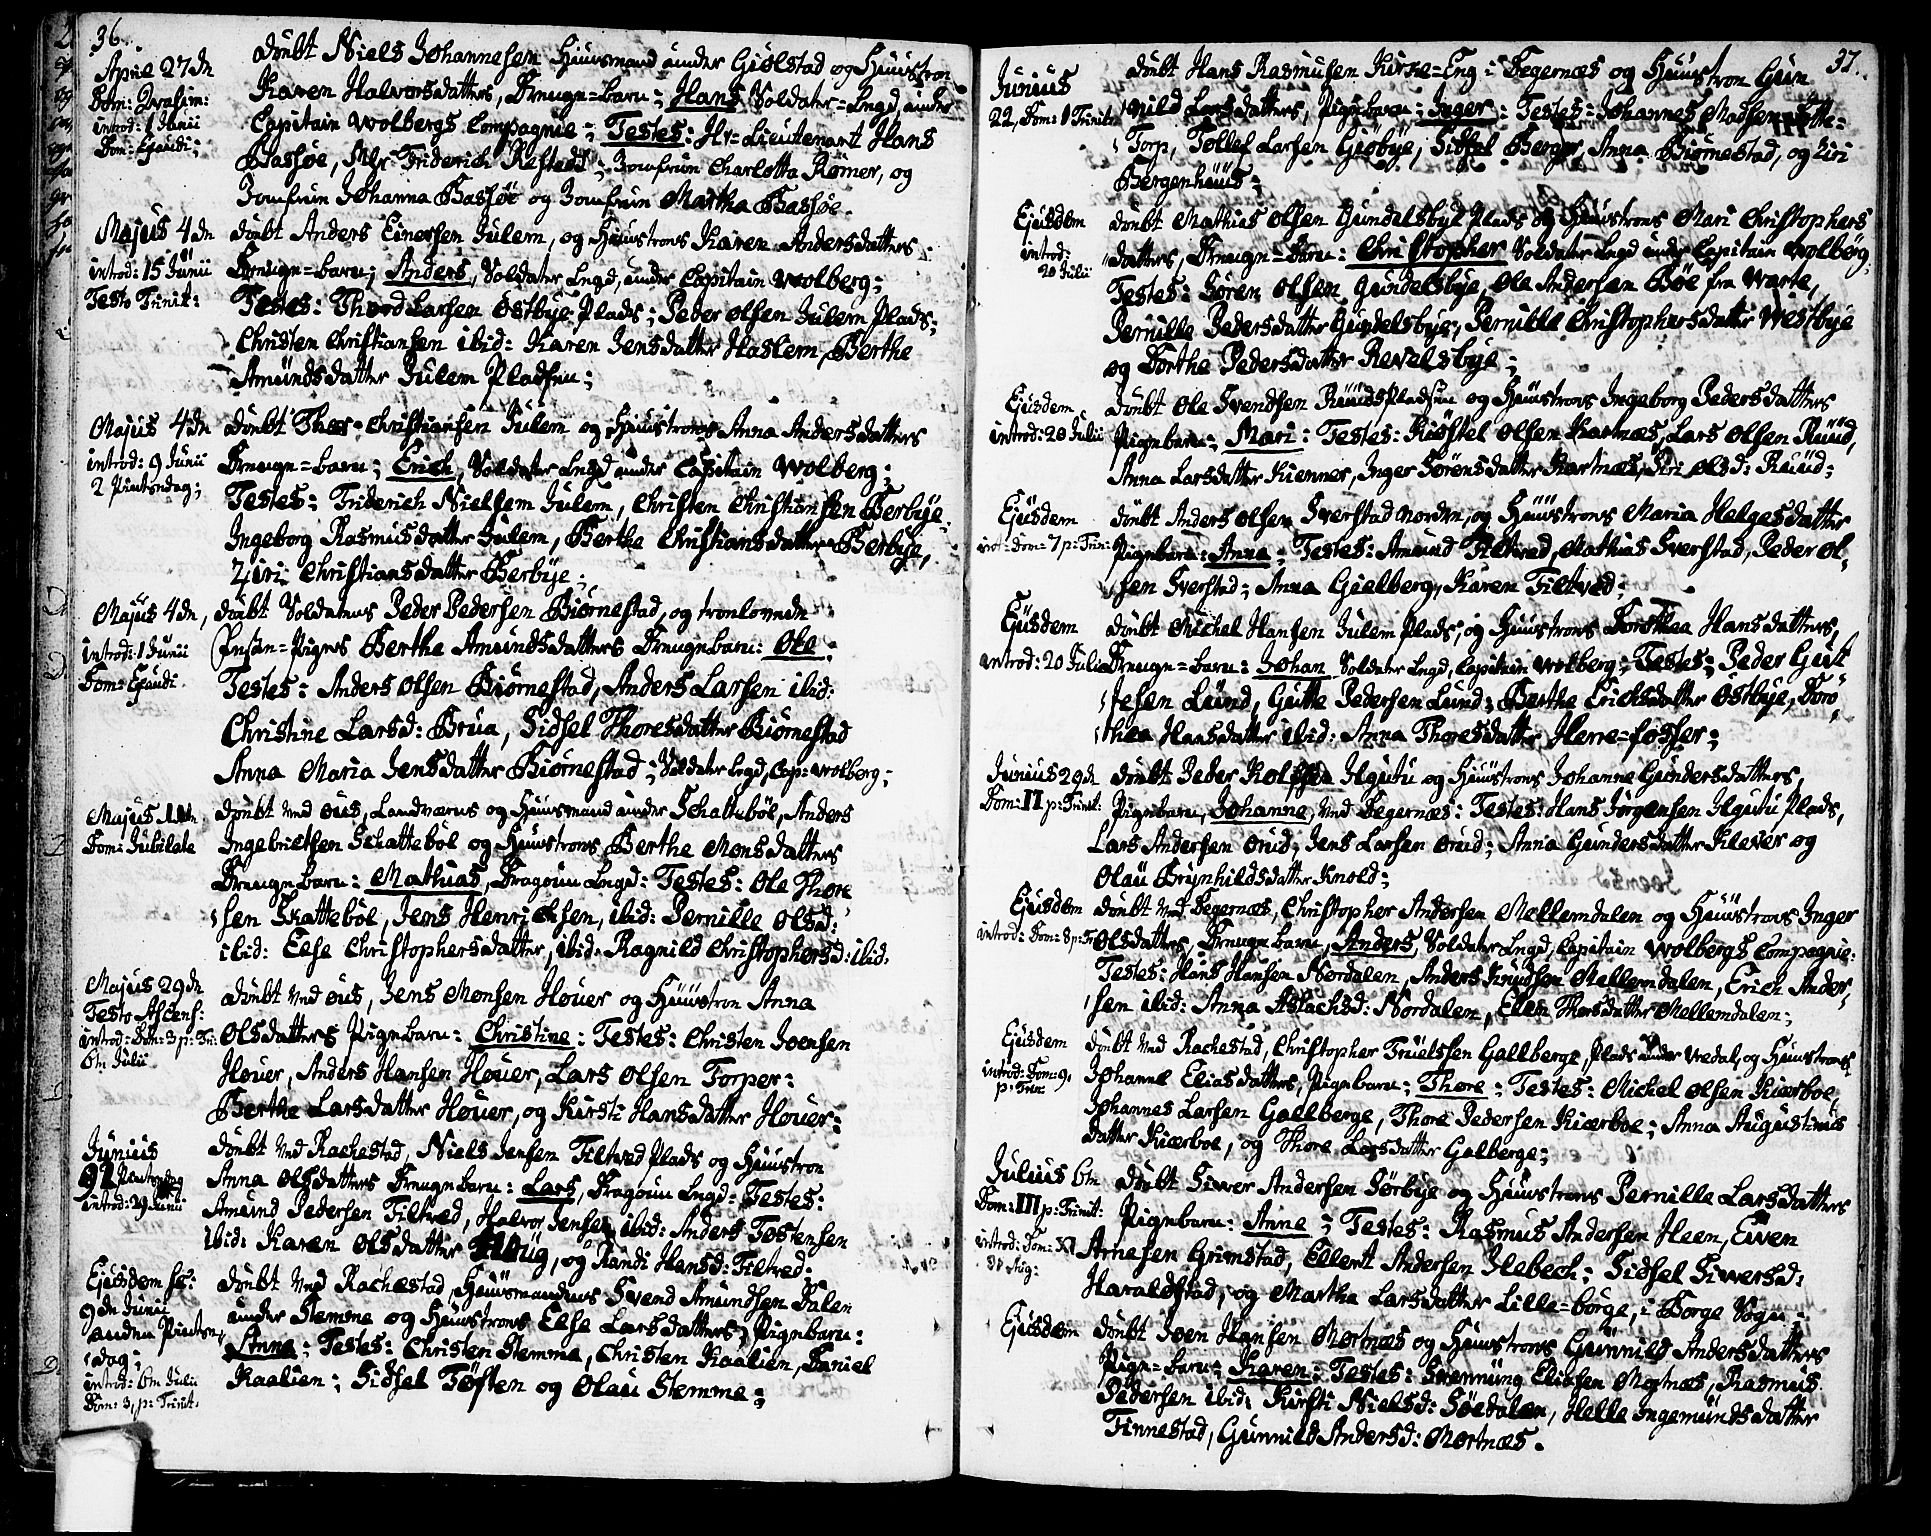 36.
April 27de
Dom: Qvasim:
introd: 1 Junii
Dom: Exaudi;
døbt Niels Johannesen Huusmand under Giølstad og Huustrou
Karen Halvorsdatters, Drenge=barn; Hans, Soldater=Lægd, under
Capitain Wolbergs Compagnie; Testes: Hr: Lieutenant Hans
Bassøe, Mr Friderich Restedt; Jomfrue Charlotta Rømer, og
Jomfrue Johanna Bassøe og Jomfrue Martha Bassøe.
Majus 4de
introd: 15 Junii
Festo Trinit:
døbt Anders Einersen Julem, og Huustroes Karen Andersdatters
Drenge=barn; Anders, Soldater Lægd, under Capitain Wolberg;
Testes: Thord Larsen Østbye Plads; Peder Olsen Julem Plads;
Christen Christiansen ibid: Karen Jensdatter Haslem, Berthe
Amundsdatter Julem Pladsen;
Majus 4de
introd: 9 Junii
2 Pintsedag;
døbt Thor Christiansen Julem og Huustroes Anna Andersdatters
Drenge=barn; Erich, Soldater Lægd under Capitain Wolberg;
Testes: Friderich Nielsen Julem, Christen Christiansen Berbye
Ingeborg Rasmusdatter Julem, Berthe Christiansdatter Berbye,
Siri Christiansdatter Berbye;
Majus 4de,
introd: 1 Junii
Dom: Exaudi.
døbt Soldatens Peder Pedersen Biørnestad, og trolovede
Piges Berthe Amundsdatters Drengebarn: Ole;
Testes: Anders Olsen Biørnestad, Anders Larsen ibid:
Christine Larsd: Brua, Sidsel Thoresdatter Biørnestad
Anna Maria Jensdatter Biørnestad; Soldater Lægd, Cap: Wolberg;
Majus 11te
Dom: Jubilate
døbt ved ous, Landværns og Huusmand under Schattebøl, Anders
Ingebrietsen Schattebøl og Huustroes Berthe Monsdatters
Drengebarn: Mathias, Dragoun Lægd: Testes: Ole Thore
sen Skattebøl, Jens Henrichsen, ibid: Pernille Olsd:
ibid: Else Christophersdatter, ibid: Ragnild Christophersd: ibid.
Majus 29de
Festo Ascens:
introd: Dom: 3 p: Tri:
6te Julii
døbt ved ous, Jens Monsen Houer og Huustrou Anna
Olsdatters Pigebarn: Christine: Testes: Christen Joensen
Houer, Anders Hansen Houer, Lars Olsen Torper:
Berthe Larsdatter Houer, og Kirsti Hansdatter Houer:
Junius
introd: 29 Junii
døbt ved Rachestad, Niels Jensen Tiltved Plads og Huustrou
Anna Olsdatters Drengebarn: Lars, Dragoun Lægd: Testes:
Amund Pedersen Tiltved, Halvor Jensen ibid: Anders Tostensen
ibid: Karen Olsdatter Houg, og Randi Hansd: Tiltved.
Ejusdem
9de Junii
anden Pintse
dag;
introd: 6te Julii
Dom: 3, p: Trinit.
døbt ved Rachestad, Huusmandens Svend Amundsen Dalen
under Stemme og Huustroes Else Larsdatters Pigebarn:
Anna; Testes: Christen Stemme, Christen Kaalien, Daniel
Kaalien; Sidsel Tøften og Olau Stemme;
37.
Junius
22, Dom: 1 Trinit:
døbt Hans Rasmusen Kirke=Eng i Degernæs og Huustrou Gun
nild Larsdatters, Pigebarn; Inger: Testes: Johannes Madsen
Torp, Tollef Larsen Giøbye, Sidsel Berger, Anna Biørnestad, og Siri
Bergenhuus;
Ejusdem
introd:
20 Julii
døbt Mathias Olsen Gundelsbye Plads og Huustroes Mari Christophers
datters, Drenge=Barn: Christopher Soldater Lægd under Capitain Wolberg;
Testes: Søren Olsen Gundelsbye, Ole Andersen Bøe fra Warte,
Pernille Pedersdatter Gundelsbye, Pernille Christophersdatter Westbye
og Dorthe Pedersdatter Revelsbye;
Ejusdem
introd: 20 Julii
døbt Ole Svendsen Ruudspladsen og Huustroes Ingeborg Pedersdatters
Pigebarn; Mari: Testes: Kiøstel Olsen Kartnæs, Lars Olsen Ruud,
Anna Larsdatter Kienner, Inger Sørensdatter Kartnæs, Siri Olsd: Ruud:
Ejusdem
introd: Dom: 7 p: Trin:
døbt Anders Olsen Sverstad Norden, og Huustroes Maria Helgesdatter
Pigebarn: Anna; Testes: Amund Tiltved, Mathias Sverstad, Peder Ol-
sen Sverstad; Anna Gielberg, Karen Tiltved;
Ejusdem
introd: 20 Julii
døbt Michel Hansen Julem Plads, og Huustroes Dorothea Hansdatters,
Drenge=barn: Johan Soldater Lægd, Capitain Wolberg; Testes: Peder Gut
tesen Lund, Gutte Pedersen Lund; Berthe Erichsdatter Østbye, Doro
thea Hansdatter ibid: Anna Thoresdatter Herre=fosser;
Junius 29de
Dom: II p: Trinit:
døbt Peder Kolssen Ilgutu og Huustroes Johanne Gundersdatters,
Pigebarn, Johanne, ved Degernæs: Testes: Hans Jørgensen Ilgutu Plads,
Lars Andersen Orud; Jens Larsen Orud; Anna Gundersdatter Klever og
Olau Brynhildsdatter Knold;
Ejusdem
introd: Dom: 8 p: Tr:
døbt ved Degernæs, Christopher Andersen Mellemdalen og Huustroes Inger
Olsdatters, Drenge barn, Anders, Soldater Lægd, Capitain Wolbergs Compagnie:
Testes: Hans Hansen Nordalen, Anders Knudsen Mellemdalen, Erich Ander-
sen ibid: Anna Aslachsd: Nordalen, Ellen Thorsdatter Mellemdalen;
Ejusdem
introd: Dom: 9.
p: Trin:
døbt ved Rachestad, Christopher Truelssen Gallberge, Plads under Vedal, og Huustroes
Johanne Eliasdatters, Pigebarn; Thore: Testes: Michel Olsen Kiærboe,
Johannes Larsen Gallberge, Thore Pedersen Kiærboe; Anna Augustinus
datter Kiærboe, og Thore Larsdatter Galberge;
Julius 6te
Dom: III p: Trinit:
introd: Dom: XI
31 Aug:
døbt Siwer Andersen Sørbye og Huustroes Pernille Larsdatters
Pigebarn: Anne; Testes: Rasmus Andersen Heen, Ewen
Arnesen Grimstad, Ellent Andersen Ilebech; Sidsel Siwersd:
Haraldstad, og Martha Larsdatter Lille=borge, i Borge Sogn;
Ejusdem
døbt Joen Hansen Mortnæs og Huustroes Gunnild Andersdatters
Pige=barn; Karen: Testes: Svennung Elissen Mortnæs, Rasmus
Pedersen ibid: Kirsti Nielsd: Søedalen, Helle Ingemundsdatter
Finnestad, Gunnild Andersd: Mortnæs.